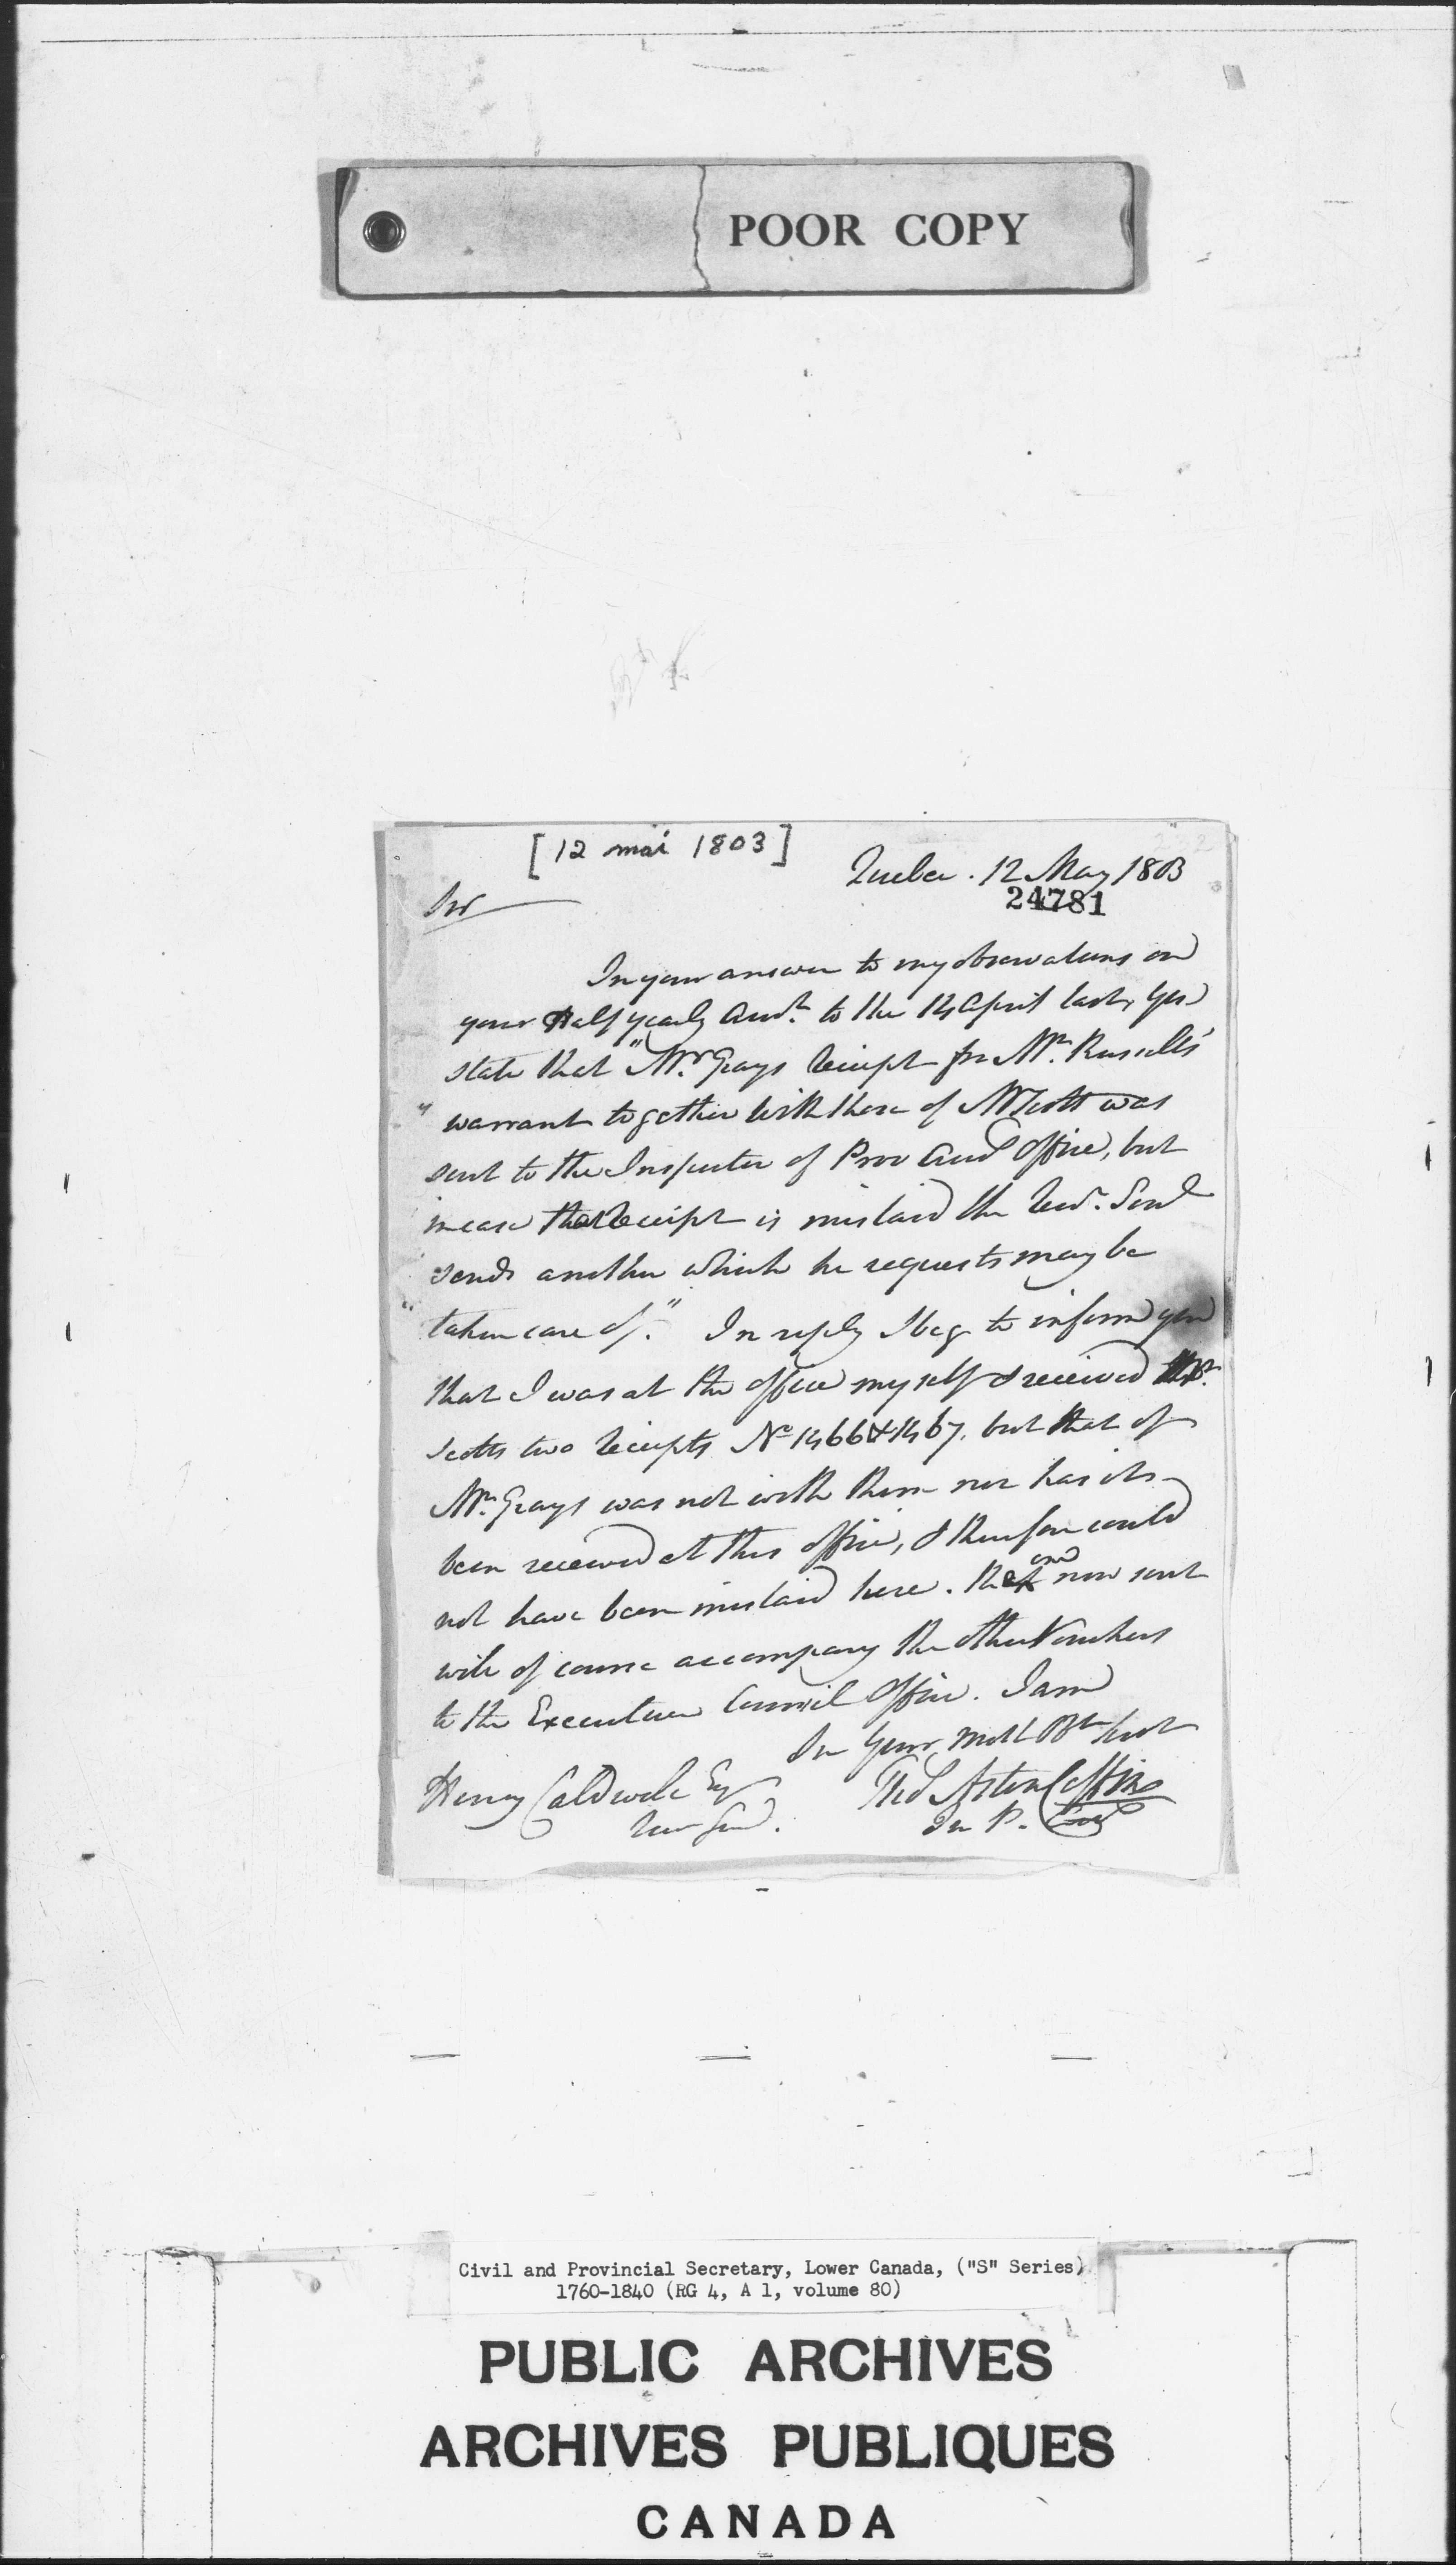 POOR COPY
[12 mai 1803]
Quebec. 12 May 1803
24781
Sir
In your answer to my observations on
your Half yearly Acc.t to the 14 April last, you
state that "Mr. Grays receipt for Mr. Russells
" warrant together with those of Mr Scott was
sent to the Inspector of Prov Accts Office, but
in case that receipt is mislaid the Rec.r Genl
sends another which he requests may be
" taken care of." In reply I beg to inform you
that I was at the office myself & received Mr.
Scotts two receipts No 1466 & 1467. but that of
Mr. Grays was not with them nor has it
been received at this office, & therefore could
not have been mislaid here. the one now sent
will of course accompany the other Vouchers
to the Executive Council Office. I am
Sir Your Most Obt Servt
Henry Caldwell Esq
Thos Aston Coffin
Rec Genl.
In P.
Civil and Provincial Secretary, Lower Canada, ("S" Series)
1760-1840 (RG 4, A 1, volume 80)
PUBLIC ARCHIVES
ARCHIVES PUBLIQUES
CANADA